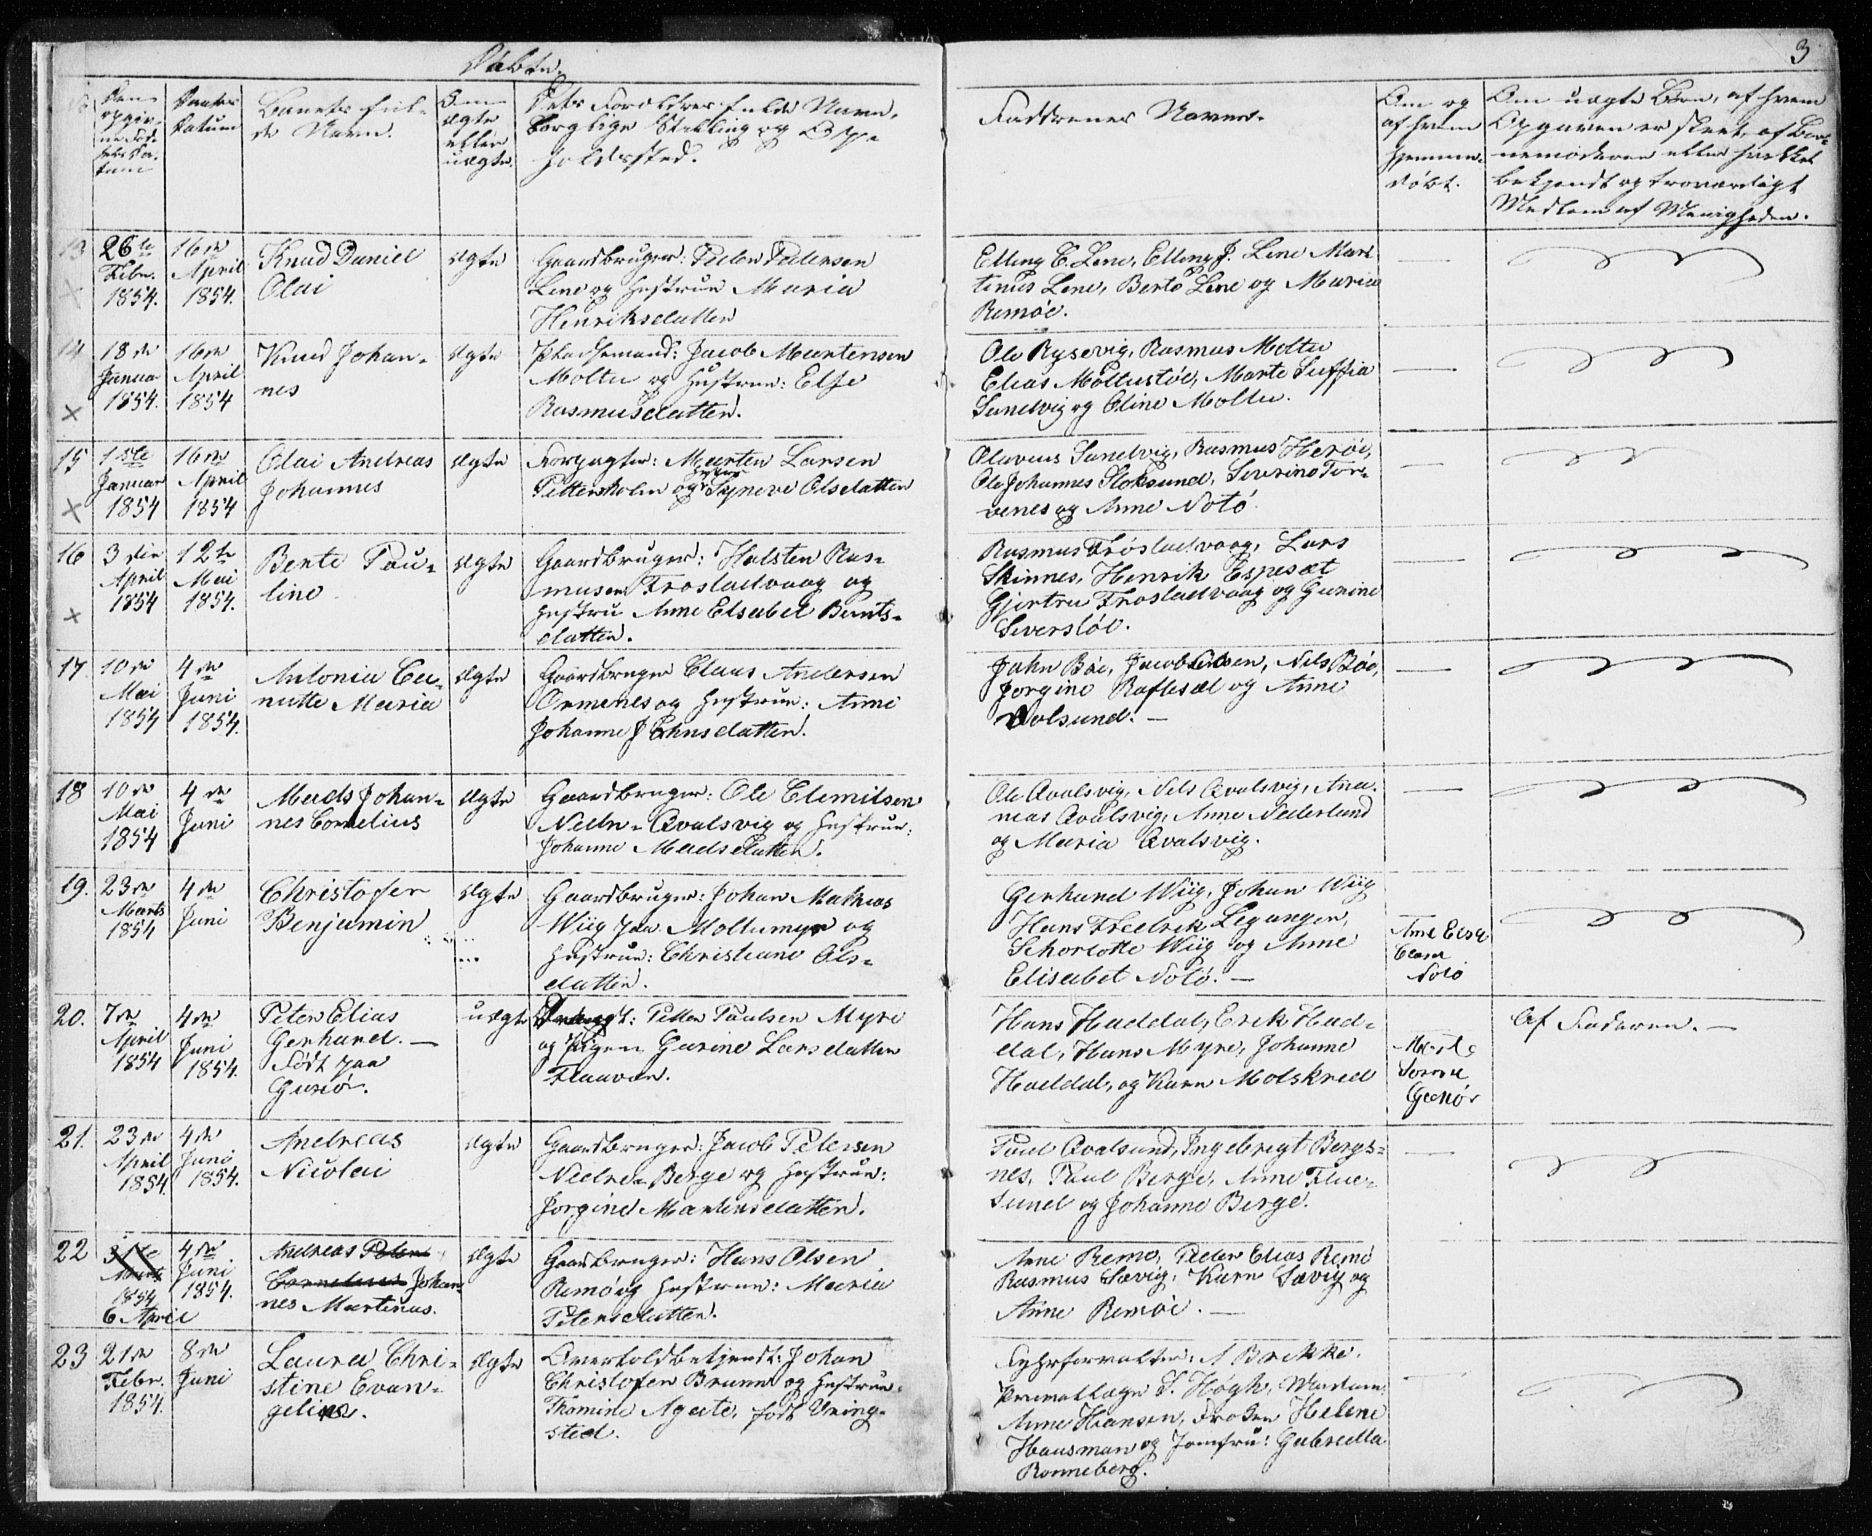 Døbte.
3
No
Den opgivne Fødsels Datum
Daabens Datum
Barnets fulde Navn.
Om ægte eller uægte
Dets Forældres fulde Navn, borglige Stilling og Opholdssted.
Faddrenes Navne.
Om og af hvem hjemmedøbt.
Om uægte Børn, af hvem Opgaven er skeet, af Barnemoderen eller hvilket bekjendt og troværdigt Medlem af Menigheden.
13
26de Febr. 1854.
16de April 1854.
Knud Daniel
Olai
ægte
Gaardbruger: Peder Pedersen
Lene og Hustrue Maria
Henriksdatter
Elling E. Lene, Elling J. Lene Mar-
tinus Lene, Berte Lene og Maria
Remøe.
14
×
18de Januar 1854.
16de April 1854
Knud Johan-
nes
ægte
Pladsemand: Jacob Martensen
Moltu og Hustrue: Else
Rasmusdatter.
Ole Rysevig, Rasmus Moltu
Elias Moltustøe, Marte Suffia
Sandvig og Oline Moltu.
15
×
1ste Januar 1854
16de April 1854
Olai Andreas
Johannes
ægte
Forpagter: Marten Larsen
Pettersholm og Hustrue Syneve Olsdatter
Olaveus Sandvig, Rasmus Herøe,
Ole Johannes Stoksund, Severine Tor-
venes og Anne Notø.
16
×
3die April 1854
12te Mai 1854.
Bente Pau-
line
ægte
Gaardbruger: Halsten Ras-
musen Frostadvaag og
Hustru Anne Elsabet Bents-
datter.
Rasmus Frøstadvaag, Lars
Skinnes, Henrik Espesæt
Gjertru Frostadvaag og Gurine
Severstøe.
17
10de Mai 1854
4de Juni 1854.
Antonia Ce-
nutte Maria
ægte
Gaardbruger Claus Andersen
Ormenes og Hustrue: Anne
Johanne J Ehnsdatter.
John Bøe, Jacob Larsen, Nels Bøe,
Jorgine Raftesæt og Anne
Volsund. —
18
10de Mai 1854
4de Juni
Mads Johan-
nes Cornelius
ægte
Gaardbruger: Ole Clemitsen
Nedre-Qvalsvig og Hustrue:
Johanne Madsdatter.
Ole Qvalsvig, Nels Qvalsvig, Ana-
nias Qvalsvig, Anne Nederland
og Maria Qvalsvig.
19.
23de Marts 1854
4de Juni
Christofer
Benjamin
ægte
Gaardbruger: Johan Mathias
Wiig paa Moltumyr og
Hustrue: Christiane Ols-
datter.
Gerhard Wiig, Johan Wiig
Hans Fredrik Legangen,
Schorlotte Wiig og Anne
Elisabet Notø. —
Anne Elisa
Notø
20.
7de April 1854
4de Juni 1854.
Peter Elias
Gerhard. —
Født paa
Gursør.
uægte
Drengt: Petter Paulsen Myre
og Pigen Gurine Larsdatter
Flaavær.
Hans Haddal, Erik Had-
dal, Hans Myre, Johanne
Haddal, og Karn Molskred
Af Faderen. —
21.
23de April 1854.
4de Juni 1854.
Andreas
Nicolai
ægte
Gaardbruger: Jacob Petersen
Nedre-Berge og Hustrue:
Jorgine Martinusdatter.
Paul Qvalsund, Ingebregt Bergs-
nes, Paul Berge, Anne Flue-
sund og Johanne Berge.
22
Marts 1854 6 April
4de Juni 1854.
Andreas Peter
Cornelius Johan-
nes Martinus.
ægte
Gaardbruger: Hans Olsen
Remø og Hustrue: Maria
Petersdatter.
Arne Remø, Peder Elias Remø
Rasmus Sævig, Karn Sævig og
Anne Remøe. —
23
21de Febr. 1854.
8de Juni
Laura Chri-
stine Evan-
geline.
ægte
Overtoldbetjendt: Johan
Christofer Brunn og Hustrue:
Thomine Agate, født Vring-
sted.
Fyhrforvalter: A Brekke.
Privatlæge S. Høgh, Madam
Anne Hansen, Frøken Helene
Hausman og Jomfru: Gabriella
Ronneberg.